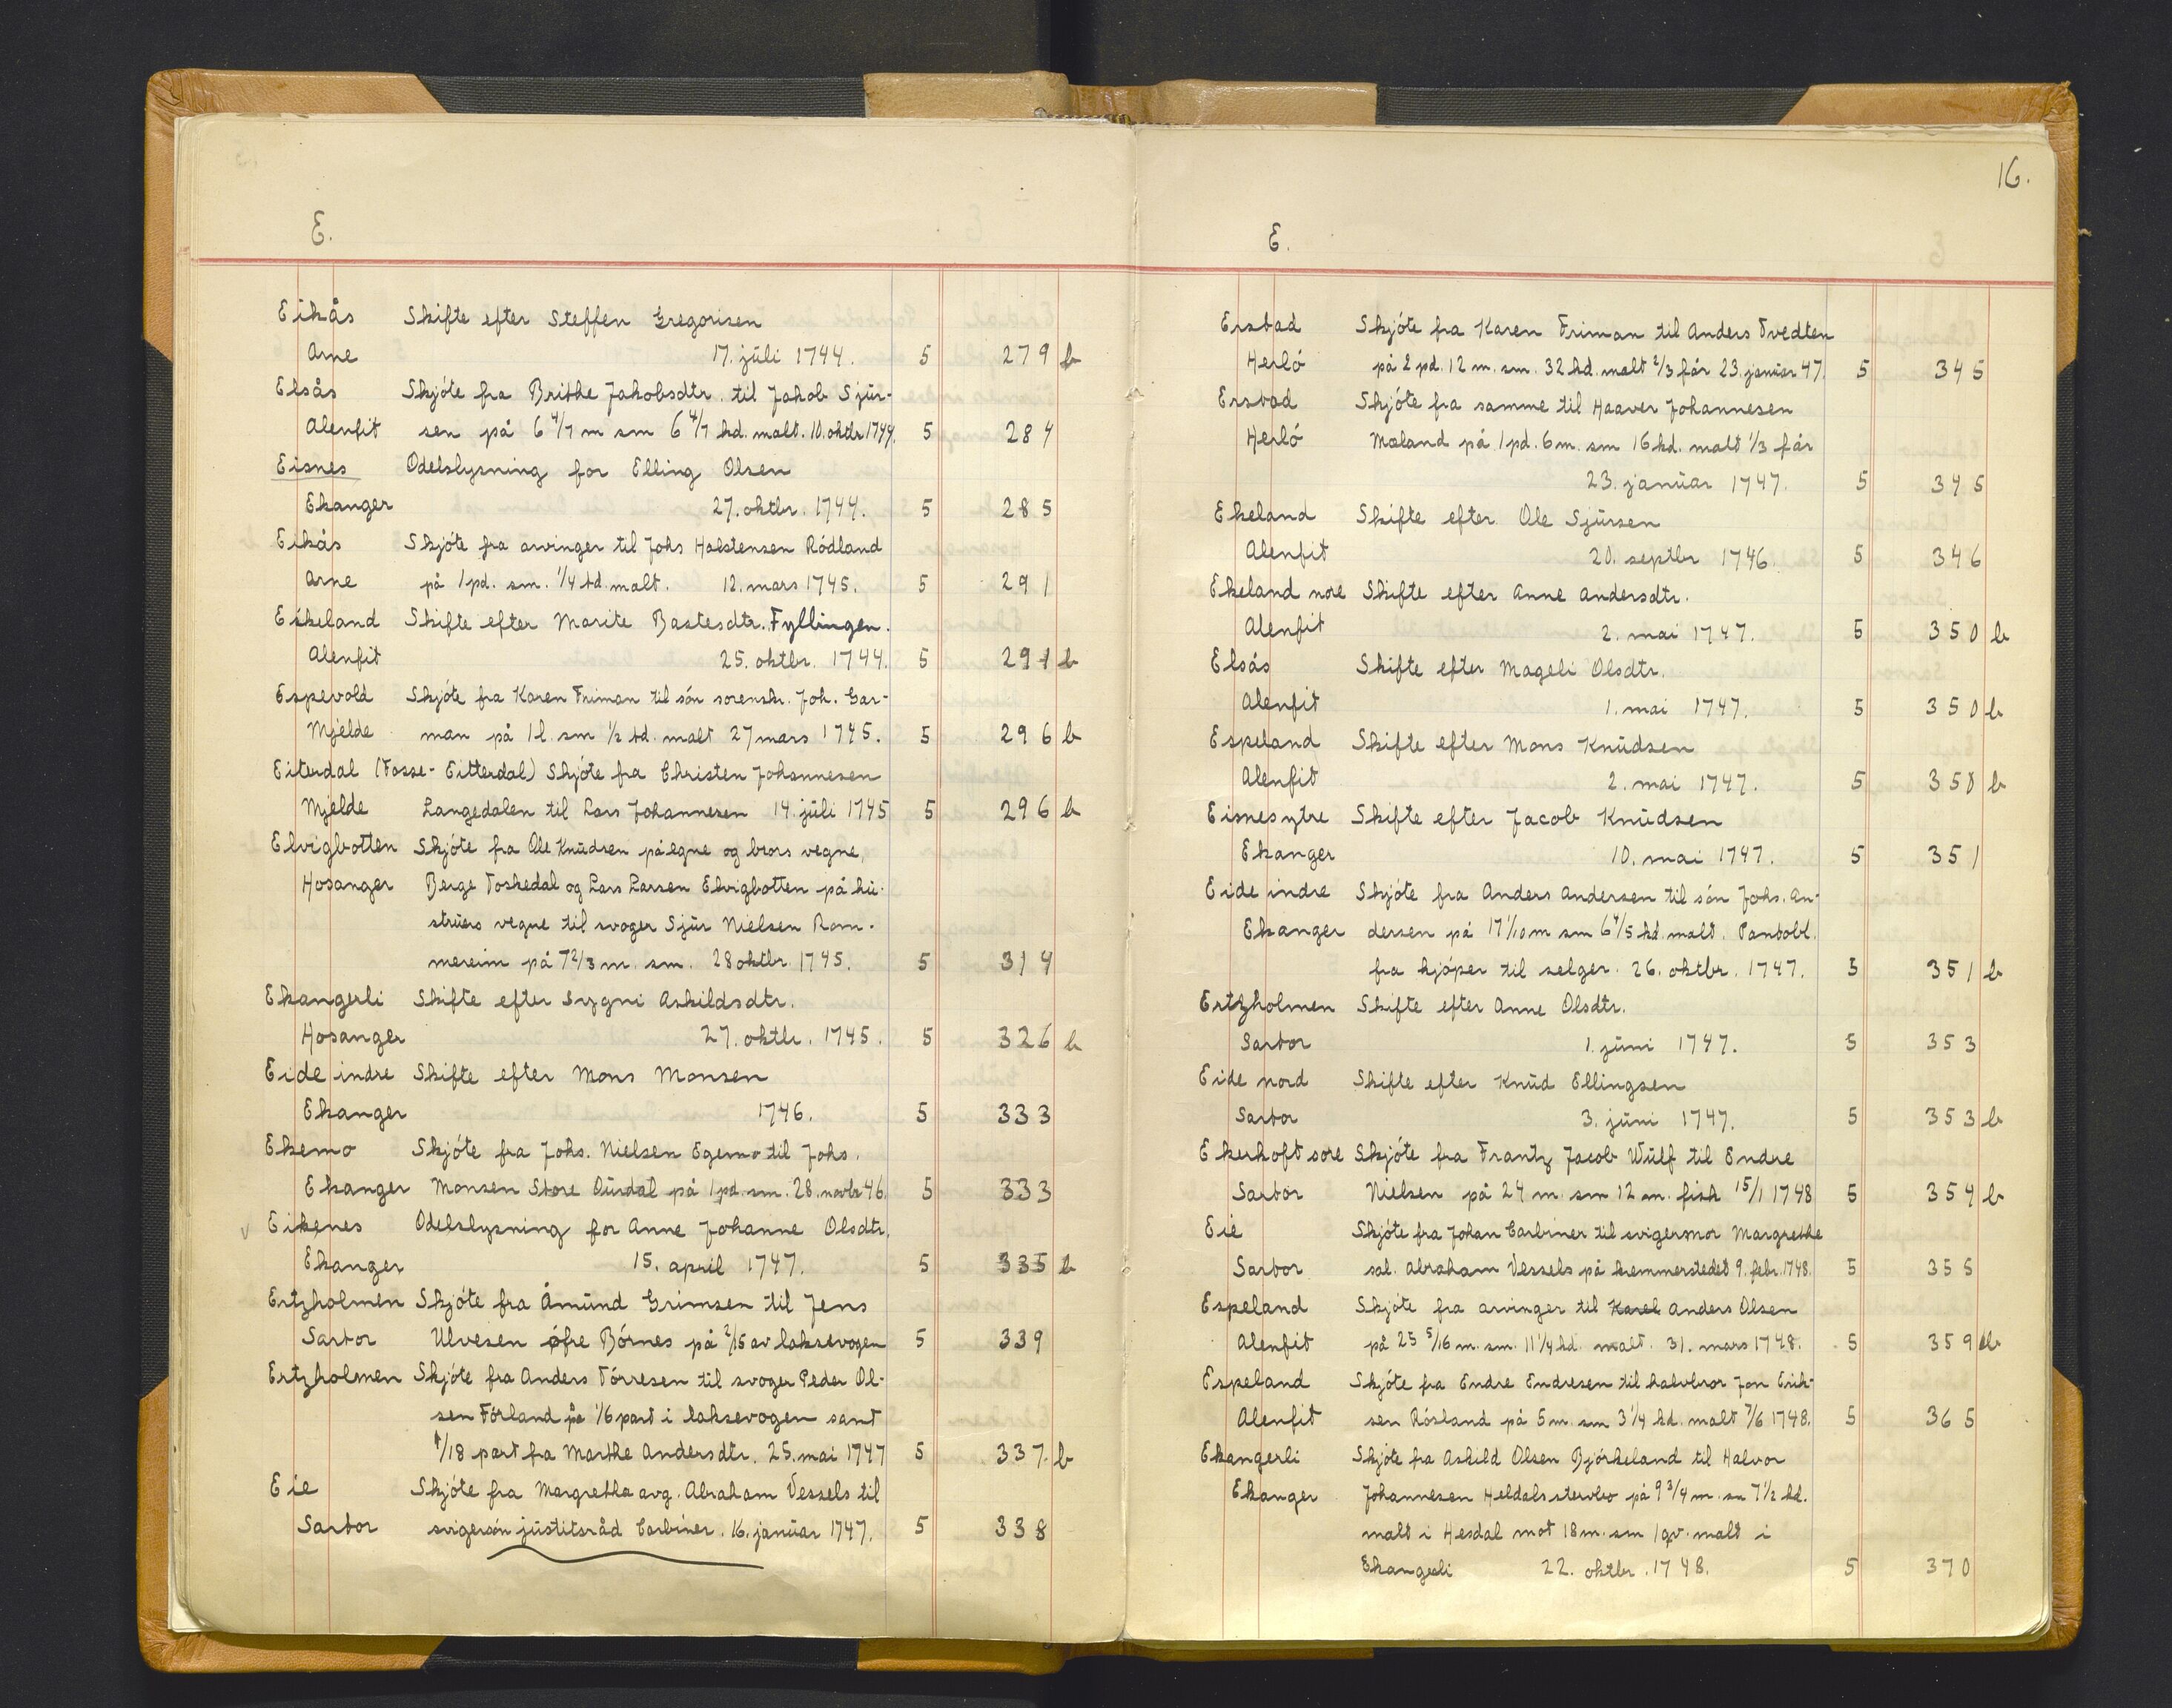 E.
Eikås Skifte efter Steffen Gregorisen
Arne 17. jŭli 1744. 5 279 b
Elsås Skjöte fra Brithe Jakobsdtr. til Jakob Sjŭr-
Alenfit sen på 6 4/7 m sm 6 4/7 kd. malt. 10. oktbr 1744. 5 284
Eisnes Odelslysning for Elling Olsen
Ekanger 27. oktbr. 1744. 5 285
Eikås Skjöte fra arvinger til Johs Halstensen Rödland
Arne på 1 pd. sm. 1/4 td. malt. 12. mars 1745. 5 291
Eikeland Skifte efter Marite Bastesdtr. Fyllingen.
Alenfit 25. oktbr. 1744. 5 291 b
Espevold Skjöte fra Karen Friman til sön sorenskr. Joh. Gar-
Mjelde man på 1 l. sm 1/2 td. malt 27 mars 1745. 5 296 b
Eiterdal (Fosse- Eitterdal) Skjöte fra Christen Johannesen
Mjelde Langedalen til Lars Johannesen 14. jŭli 1745 5 296 b
Elvigbotten Skjöte fra Ole Knŭdsen på egne og brors vegne,
Hosanger Berge Toskedal og Lars Larsen Elvigbotten på hŭ-
strŭers vegne til svoger Sjŭr Nielsen Rom-
mereim på 7 2/3 m. sm. 28 oktbr. 1745. 5 314
Ekangerli Skifte efter Sygni Askildsdtr.
Hosanger 27. oktbr. 1745. 5 326 b
Eide indre Skifte efter Mons Monsen
Ekanger 1746. 5 333
Ekemo Skjöte fra Johs. Nielsen Egemo til Johs.
Ekanger Monsen Store Dŭrdal på 1 pd. sm. 28. novbr 46. 5 333
v Eikenes Odelslysning for Anne Johanne Olsdtr.
Ekanger 15. april 1747. 5 335 b
Ertzholmen Skjöte fra Åmŭnd Grimsen til Jens
Sartor Ulvesen öfre Börnes på 2/15 av laksevogen 5 339
Ertzholmen Skjöte fra Anders Törresen til svoger Peder Ol-
sen Förland på 1/6 part i laksevogen samt
1/18 part fra Marthe Andersdtr. 25. mai 1747 5 337. b
Eie Skjöte fra Margretha avg. Abraham Vessels til
Sartor svigersön jŭstitsråd Carbiner. 16. janŭar 1747. 5 338
16.
E.
Erstad Skjöte fra Karen Friman til Anders Tvedten
Herlö på 2 pd. 12 m. sm. 32 kd. malt 2/3 får 23. janŭar 47. 5 345
Erstad Skjöte fra samme til Haaver Johannesen
Herlö Mæland på 1 pd. 6 m. sm 16 kd. malt 1/3 får
23. janŭar 1747. 5 345
Ekeland Skifte efter Ole Sjŭrsen
Alenfit 20. septbr 1746. 5 346
Ekeland nore Skifte efter Anne Andersdtr.
Alenfit 2. mai 1747. 5 350 b
Elsås Skifte efter Mageli Olsdtr.
Alenfit 1. mai 1747. 5 350 b
Espeland Skifte efter Mons Knŭdsen
Alenfit 2. mai 1747. 5 350 b
Eisnes ytre Skifte efter Jacob Knŭdsen
Ekanger 10. mai 1747. 5 351
Eide indre Skjöte fra Anders Andersen til sön Johs. An-
Ekanger dersen på 17 1/10 m sm 6 4/5 kd. malt. Pantobl.
fra kjöper til selger. 26. oktbr. 1747. 5 351 b
Ertzholmen Skifte efter Anne Olsdtr.
Sartor 1. jŭni 1747. 5 353
Eide nord Skifte efter Knŭd Ellingsen
Sartor 3. jŭni 1747. 5 353 b
Ekerhoft söre Skjöte fra Frantz Jacob Wŭlf til Endre
Sartor Nielsen på 24 m. sm 12 m. fisk 15/1 1748 5 354 b
Eie Skjöte fra Johan Carbiner til svigermor Margrethe
Sartor sal. Abraham Vessels på kremmerstedet 9. febr. 1748. 5 355
Espeland Skjöte fra arvinger til Karel Anders Olsen
Alenfit på 25 5/16 m. sm. 11 1/4 kd. malt. 31. mars 1748. 5 359 b
Espeland Skjöte fra Endre Endresen til halvbror Jon Erik-
Alenfit sen Rösland på 5 m. sm 3 1/4 kd. malt 7/6 1748. 5 365
Ekangerli Skjöte fra Askild Olsen Björkeland til Halvor
Ekanger Johannesen Heldals stervbo på 9 3/4 m. sm 7 1/2 kd.
malt i Hesdal mot 18 m. sm 1 qv. malt i
Ekangerli 22. oktbr. 1748. 5 370